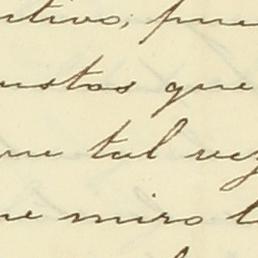 tivo, pue
ustos que
ue tal vez
ue miro l